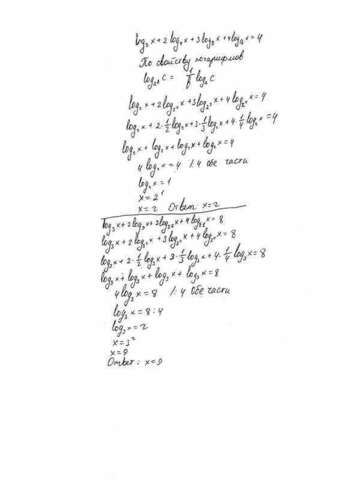 log₂x+2log₄x+3log₈x+4log₁₆x=4
По свойству логарифмов
logₐᵦ c = 1/b logₐc
log₂x+2log₂²x+3log₂³x+4log₂⁴x=4
log₂x+2·1/2 log₂x+3·1/3 log₂x+4·1/4 log₂x=4
log₂x+log₂x+log₂x+log₂x=4
4log₂x=4 /:4 обе части
log₂x=1
x=2¹
x=2 Ответ: x=2
log₃x+2log₉x+3log₂₇x+4log₈₁x=8
log₃x+2log₃²x+3log₃³x+4log₃⁴x=8
log₃x+2·1/2 log₃x+3·1/3 log₃x+4·1/4 log₃x=8
log₃x+log₃x+log₃x+log₃x=8
4log₃x=8 /:4 обе части
log₃x=8:4
log₃x=2
x=3²
x=9
Ответ: x=9